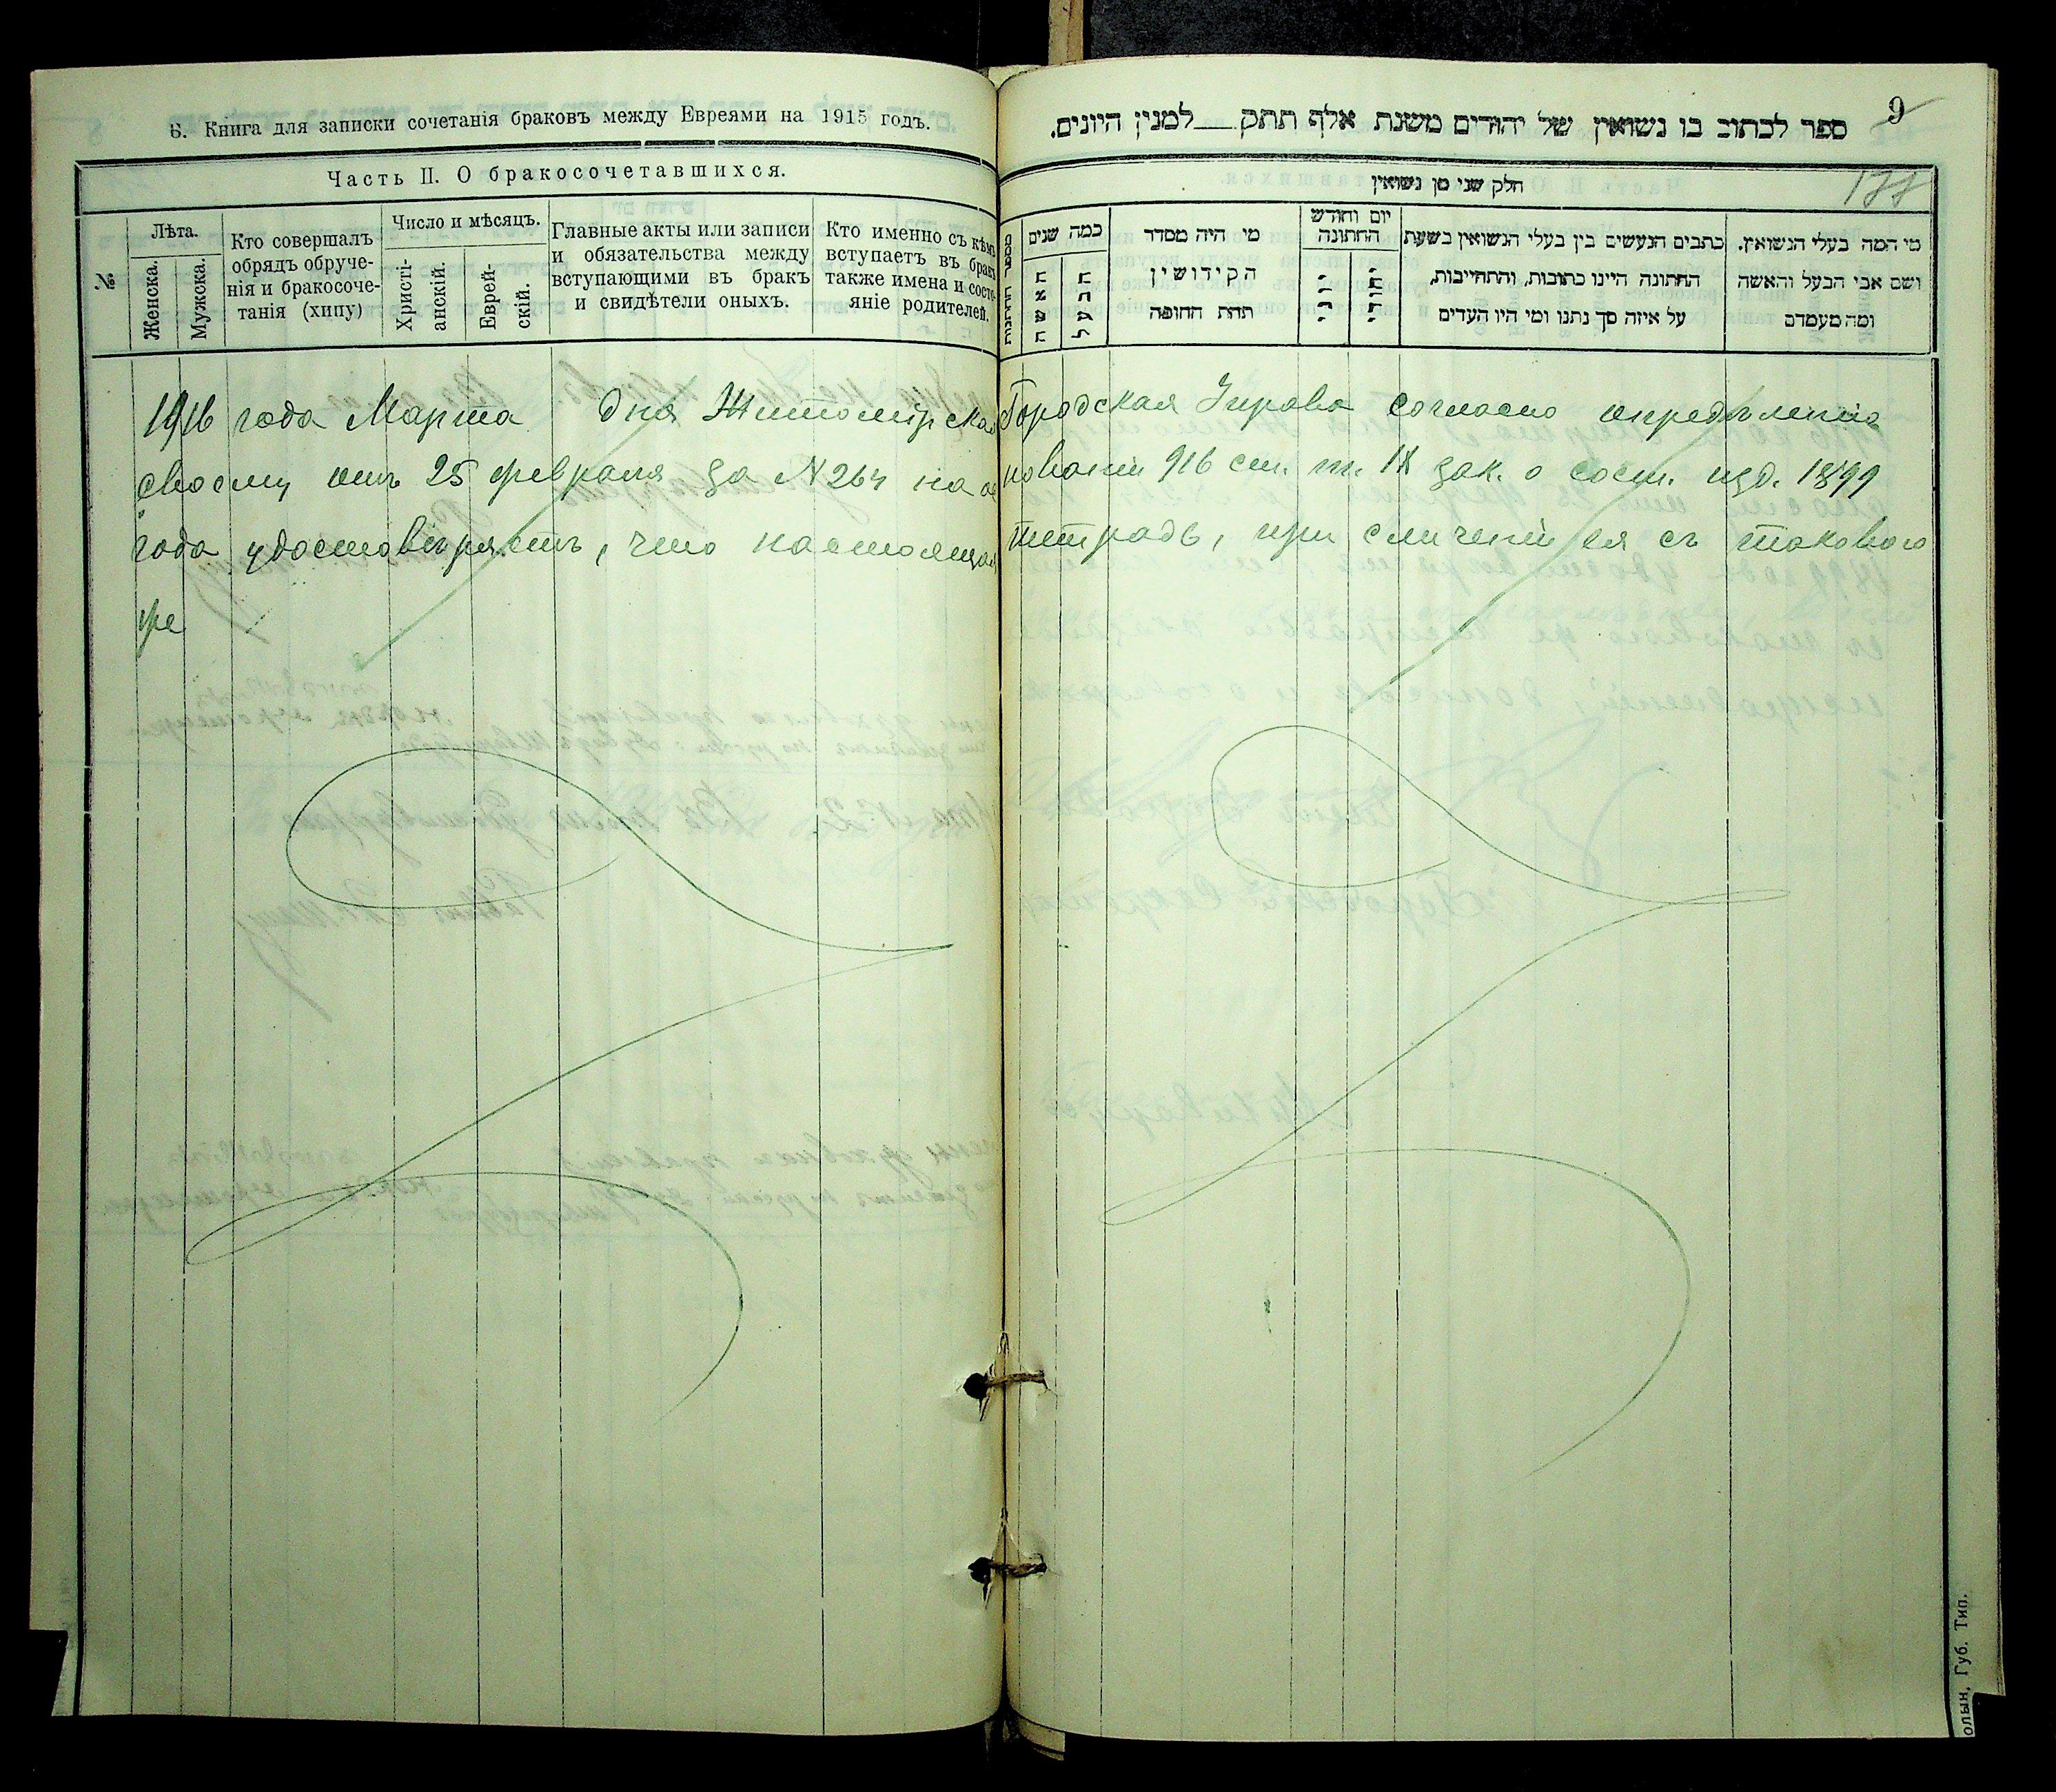 Б. Книга для записки сочетанія браковъ между Евреями на 1915 годъ.
Часть II. О бракосочетавшихся.
№
Лѣта.
Женска.
Мужска.
Кто совершалъ
обрядъ обруче-
нія и бракосоче-
танія (хипу)
Число и мѣсяцъ.
Христі-
анскій.
Еврей-
скій.
Главные акты или записи
и обязательства между
вступающими въ бракъ
и свидѣтели оныхъ.
Кто именно съ кѣмъ
вступаетъ въ бракъ
также имена и состо-
яніе родителей.
9
ספר לכתוב בו נשואין של יהודים משנת אלף תתק___למנין היונים.
חלק שני מן נשואין
כמה שנים
האשה
הבעל
מי היה מסדר
הקידושין
תחת החופה
יום וחודש
החתונה
כתבים הנעשים בין בעלי הנשואין בשעת
החתונה היינו כתובות, והתחייבות,
על איזה סך נתנו ומי היו העדים
מי המה בעלי הנשואין.
ושם אבי הבעל והאשה
ומה מעמדם
1916 года Марта дня Житомірская Городская Управа согласно опредѣленію
своему отъ 25 февраля за № 264 на основаніи 916 ст. т. IX зак. о сост. изд. 1899
года удостовѣряетъ, что настоящая тетрадь, при сличеніи ея съ таковою
же
олын. Губ. Тип.